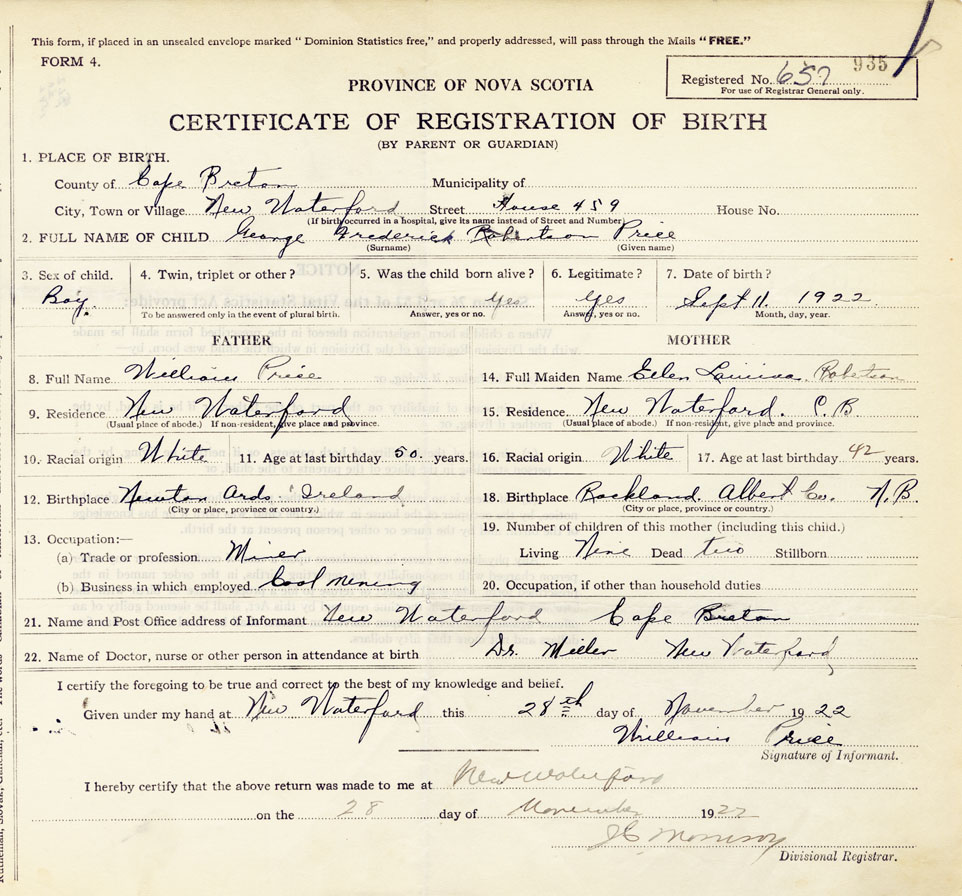 This form, if placed in an unsealed envelope marked "Dominion Statistics free," and properly addressed, will pass through the Mails "FREE."
FORM 4.
935
Registered No. 657
For use of Registrar General only.
PROVINCE OF NOVA SCOTIA
CERTIFICATE OF REGISTRATION OF BIRTH
(BY PARENT OR GUARDIAN)
1. PLACE OF BIRTH.
County of Cape Breton Municipality of
City, Town or Village New Waterford Street House 459 House No.
(If birth occurred in a hospital, give its name instead of Street and Number)
2. FULL NAME OF CHILD George Frederick Robertson Price
(Surname) (Given name)
3. Sex of child. 4. Twin, triplet or other? 5. Was the child born alive? 6. Legitimate? 7. Date of birth?
Boy. Yes Yes Sept 11. 1922
To be answered only in the event of plural birth. Answer, yes or no. Answer, yes or no. Month, day, year.
FATHER MOTHER
8. Full Name William Price 14. Full Maiden Name Ellen Robertson
9. Residence New Waterford 15. Residence. New Waterford. C.B
(Usual place of abode.) If non-resident, give place and province. (Usual place of abode.) If non-resident, give place and province.
10. Racial origin White 11. Age at last birthday 50. years. 16. Racial origin White 17. Age at last birthday 42 years.
12. Birthplace Newton Ards. Ireland 18. Birthplace Rockland. Albert Co. N.B.
(City or place, province or country.) (City or place, province or country.)
19. Number of children of this mother (including this child.)
13. Occupation:—
(a) Trade or profession Miner Living Nine Dead two Stillborn
(b) Business in which employed Coal mining 20. Occupation, if other than household duties
21. Name and Post Office address of Informant New Waterford Cape Breton
22. Name of Doctor, nurse or other person in attendance at birth Dr. Miller New Waterford
I certify the foregoing to be true and correct to the best of my knowledge and belief.
Given under my hand at New Waterford this 28th day of November 1922
William Price
Signature of Informant.
I hereby certify that the above return was made to me at New Waterford
on the 28 day of November 1922
Divisional Registrar.